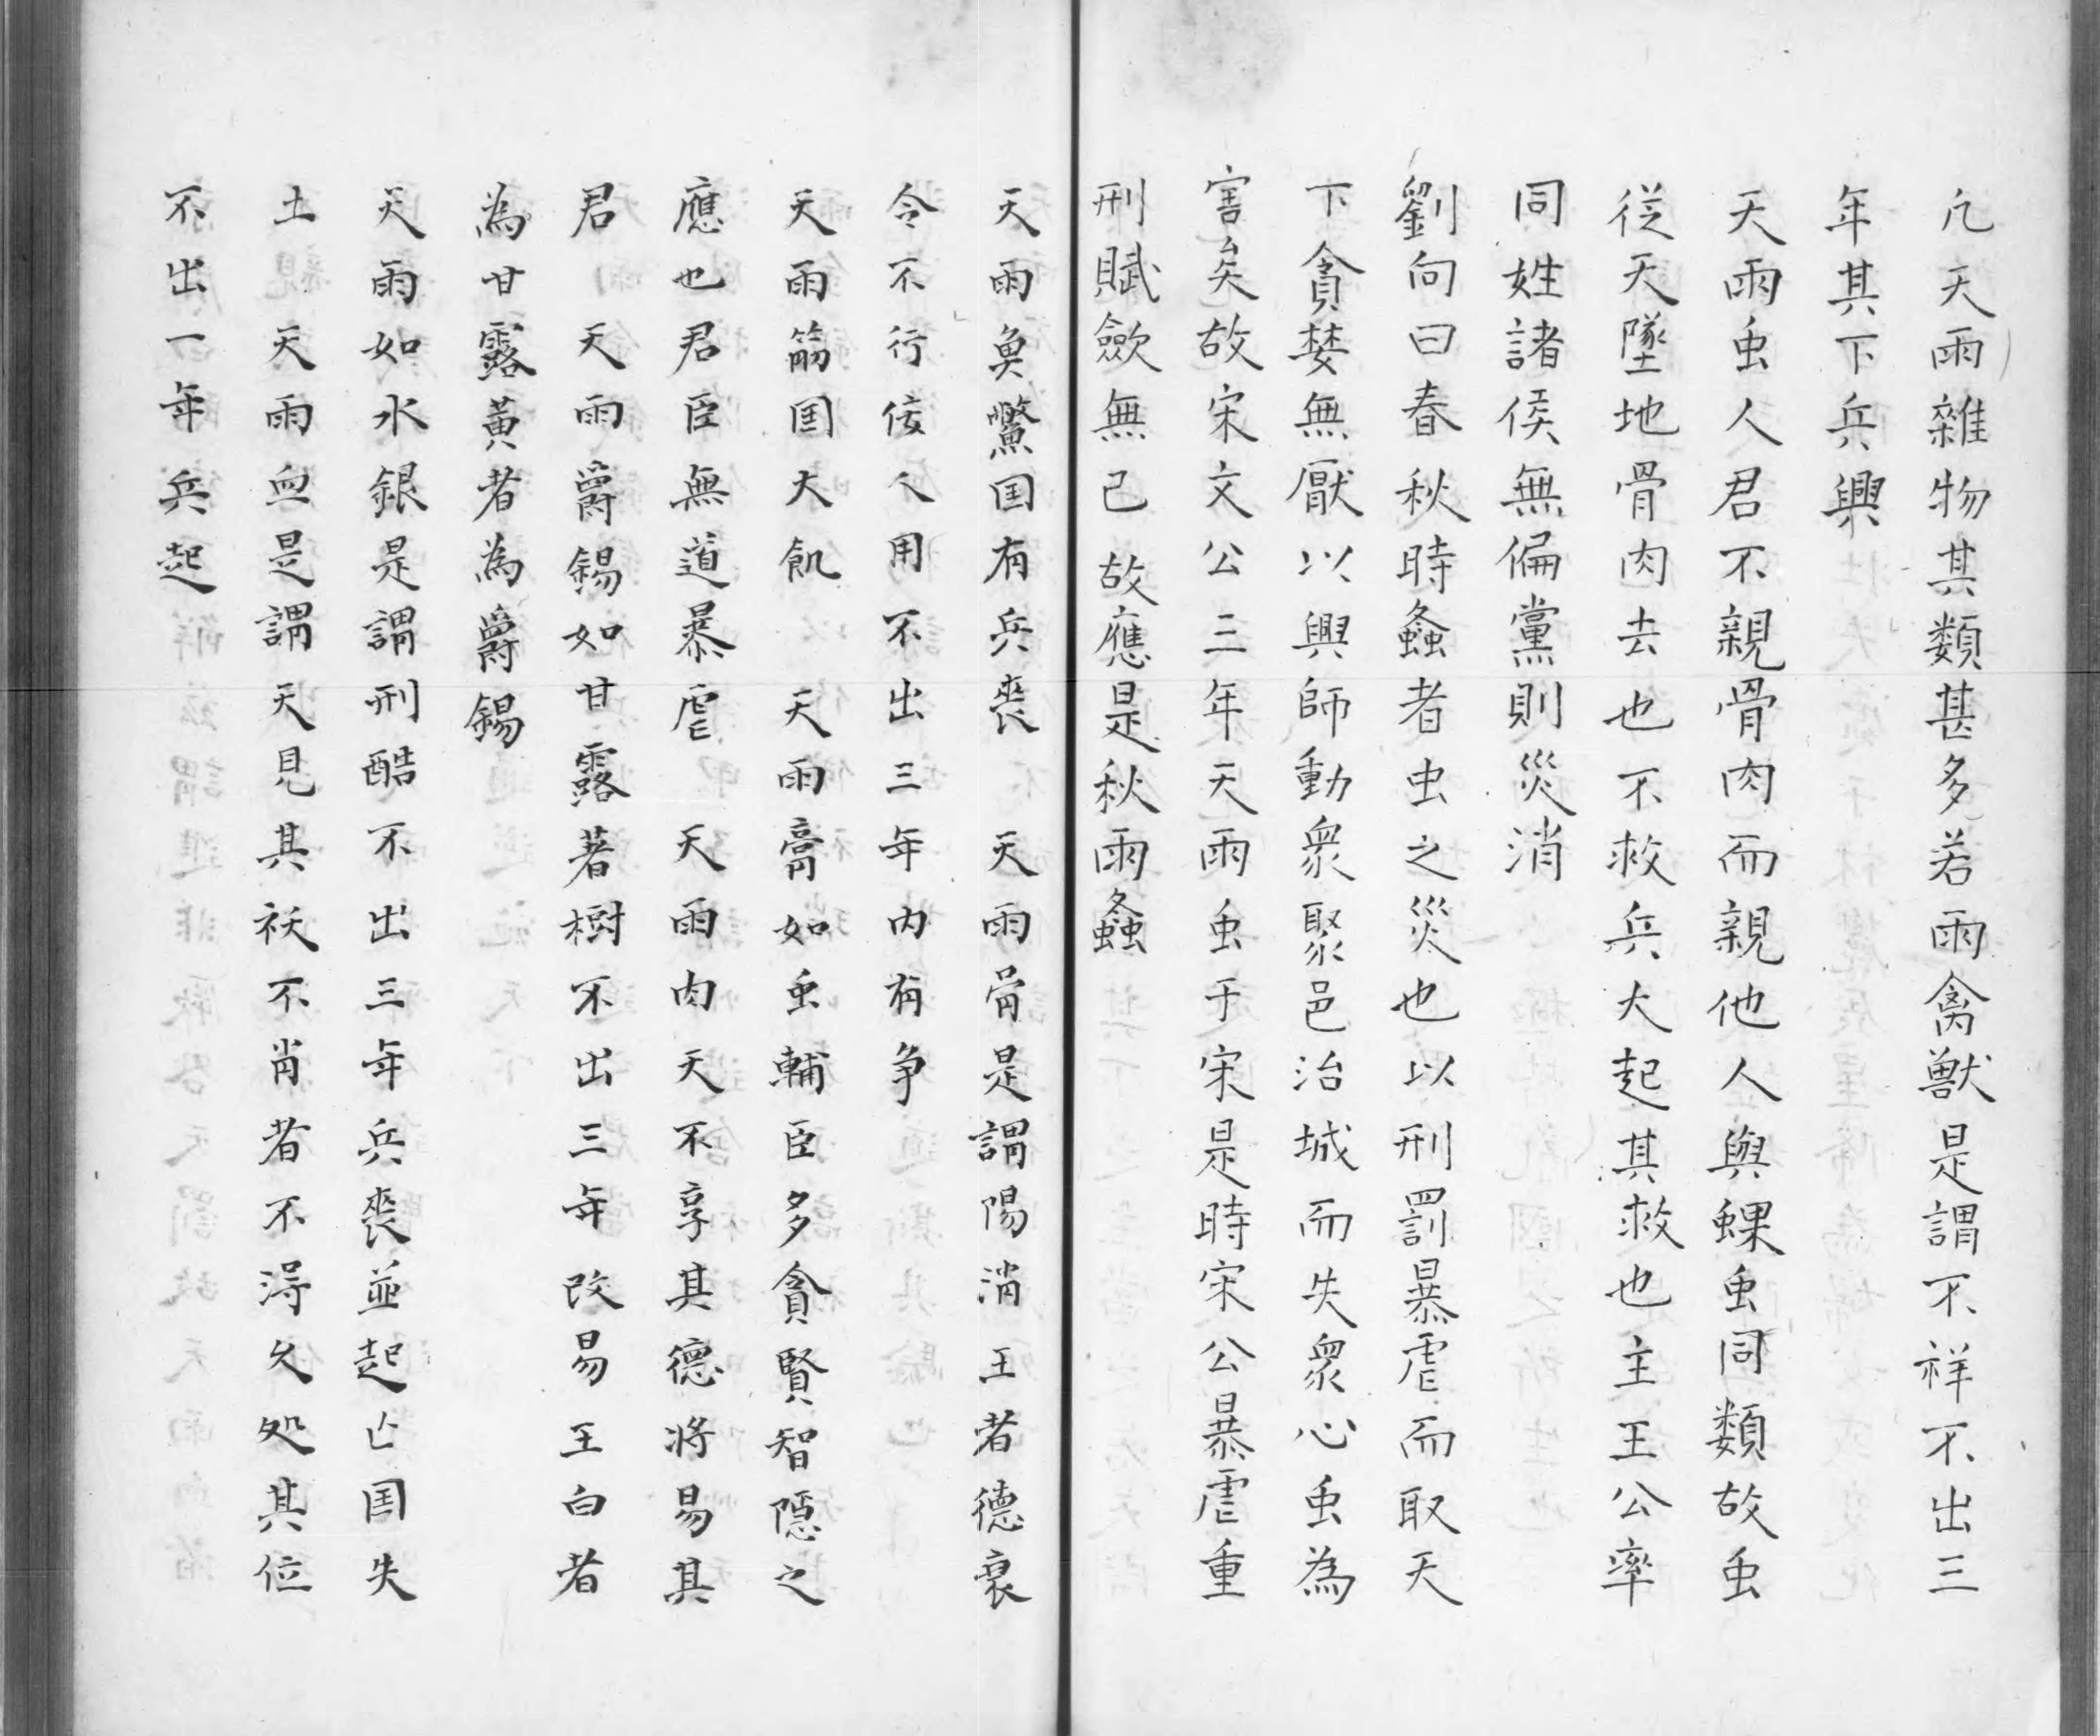 凢天雨雜物其類甚多若雨禽獸是謂不祥不出三
年其下兵興
天雨虫人君不親骨肉而親他人與蜾虫同類故虫
從天墜地骨肉去也不救兵大起其救也主王公率
同姓諸侯無偏黨則災消
劉向曰春秋時螽者虫之災也以刑罰暴虐而取天
下貪婪無厭以興師動衆聚邑治城而失衆心虫為
害矣故宋文公三年天雨虫于宋是時宋公暴虐重
刑賦歛無已 故應是秋雨螽
天雨魚鱉国有兵喪 天雨骨是謂陽消王者德衰
令不行佞人用不出三年内有争
天雨筋国大飢 天雨膏如虫輔臣多貪賢智隱之
應也君臣無道暴虐 天雨肉天不享其德将易其
君 天雨爵錫如甘露著樹不出三年改易王白者
為甘露黄者為爵錫
天雨如水銀是謂刑酷不出三年兵喪並起亡国失
土 天雨血是謂天見其祅不肖者不得久处其位
不出一年兵起